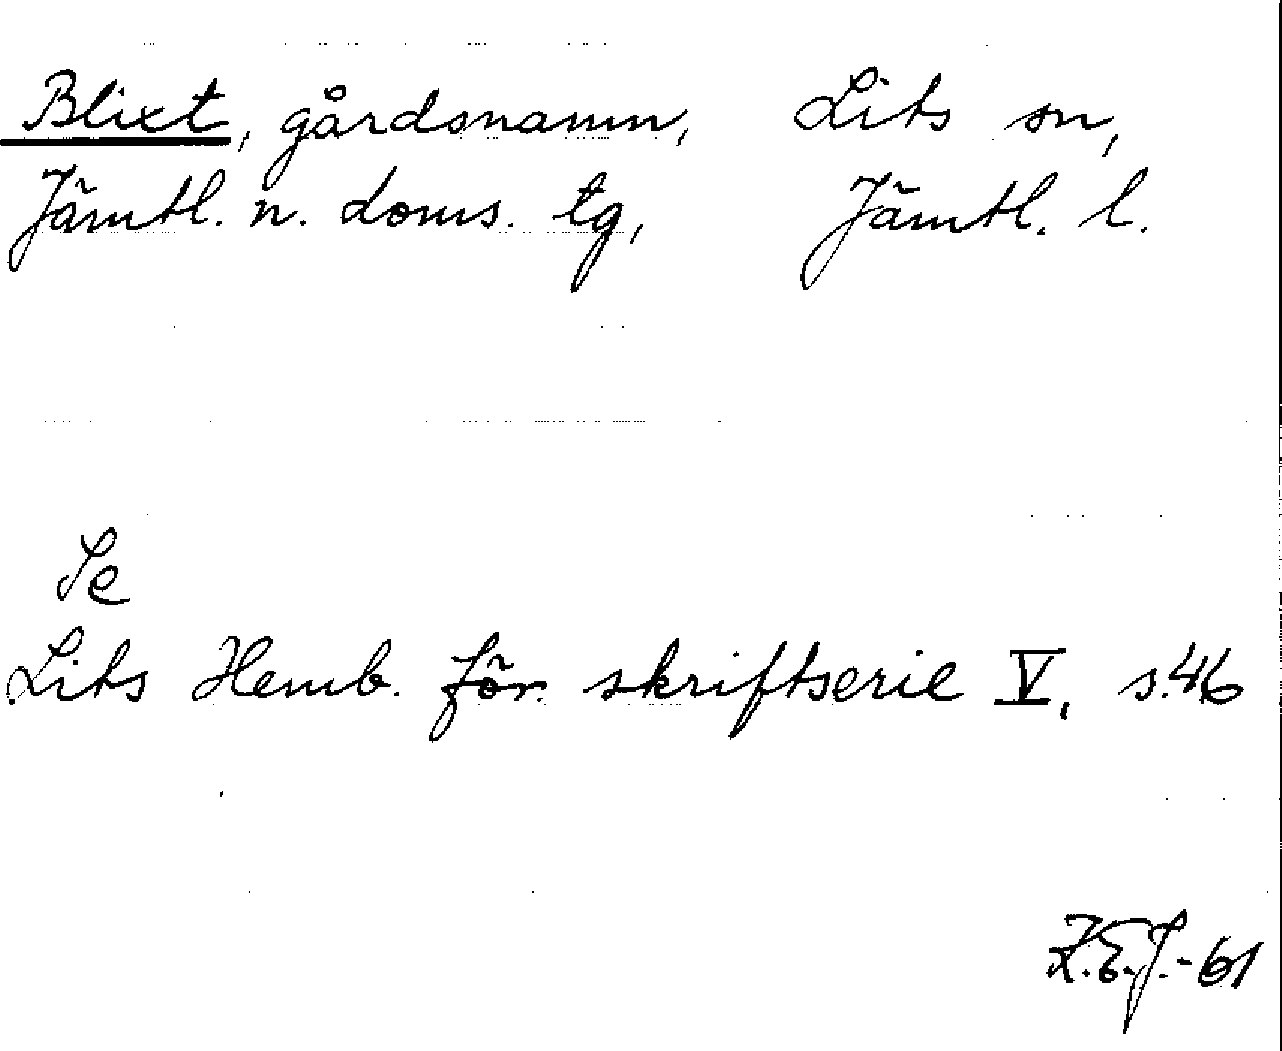 Blixt, gårdsnamn, Lits sn,
Jämtl. n. doms. tg, Jämtl. l.
Se
Lits Hemb. för. skriftserie V, s. 46
K.E.J.-61